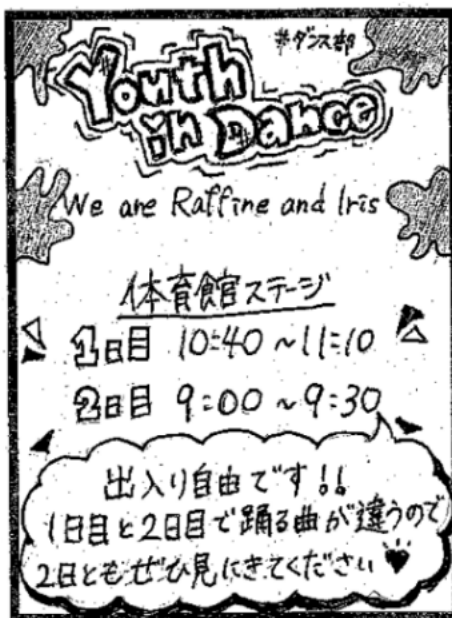 #ダンス部
Youth
in Dance
We are Raffine and Iris
体育館ステージ
1日目 10:40～11:10
2日目 9:00～9:30
出入り自由です!!
1日目と2日目で踊る曲が違うので
2日ともぜひ見にきてください♥